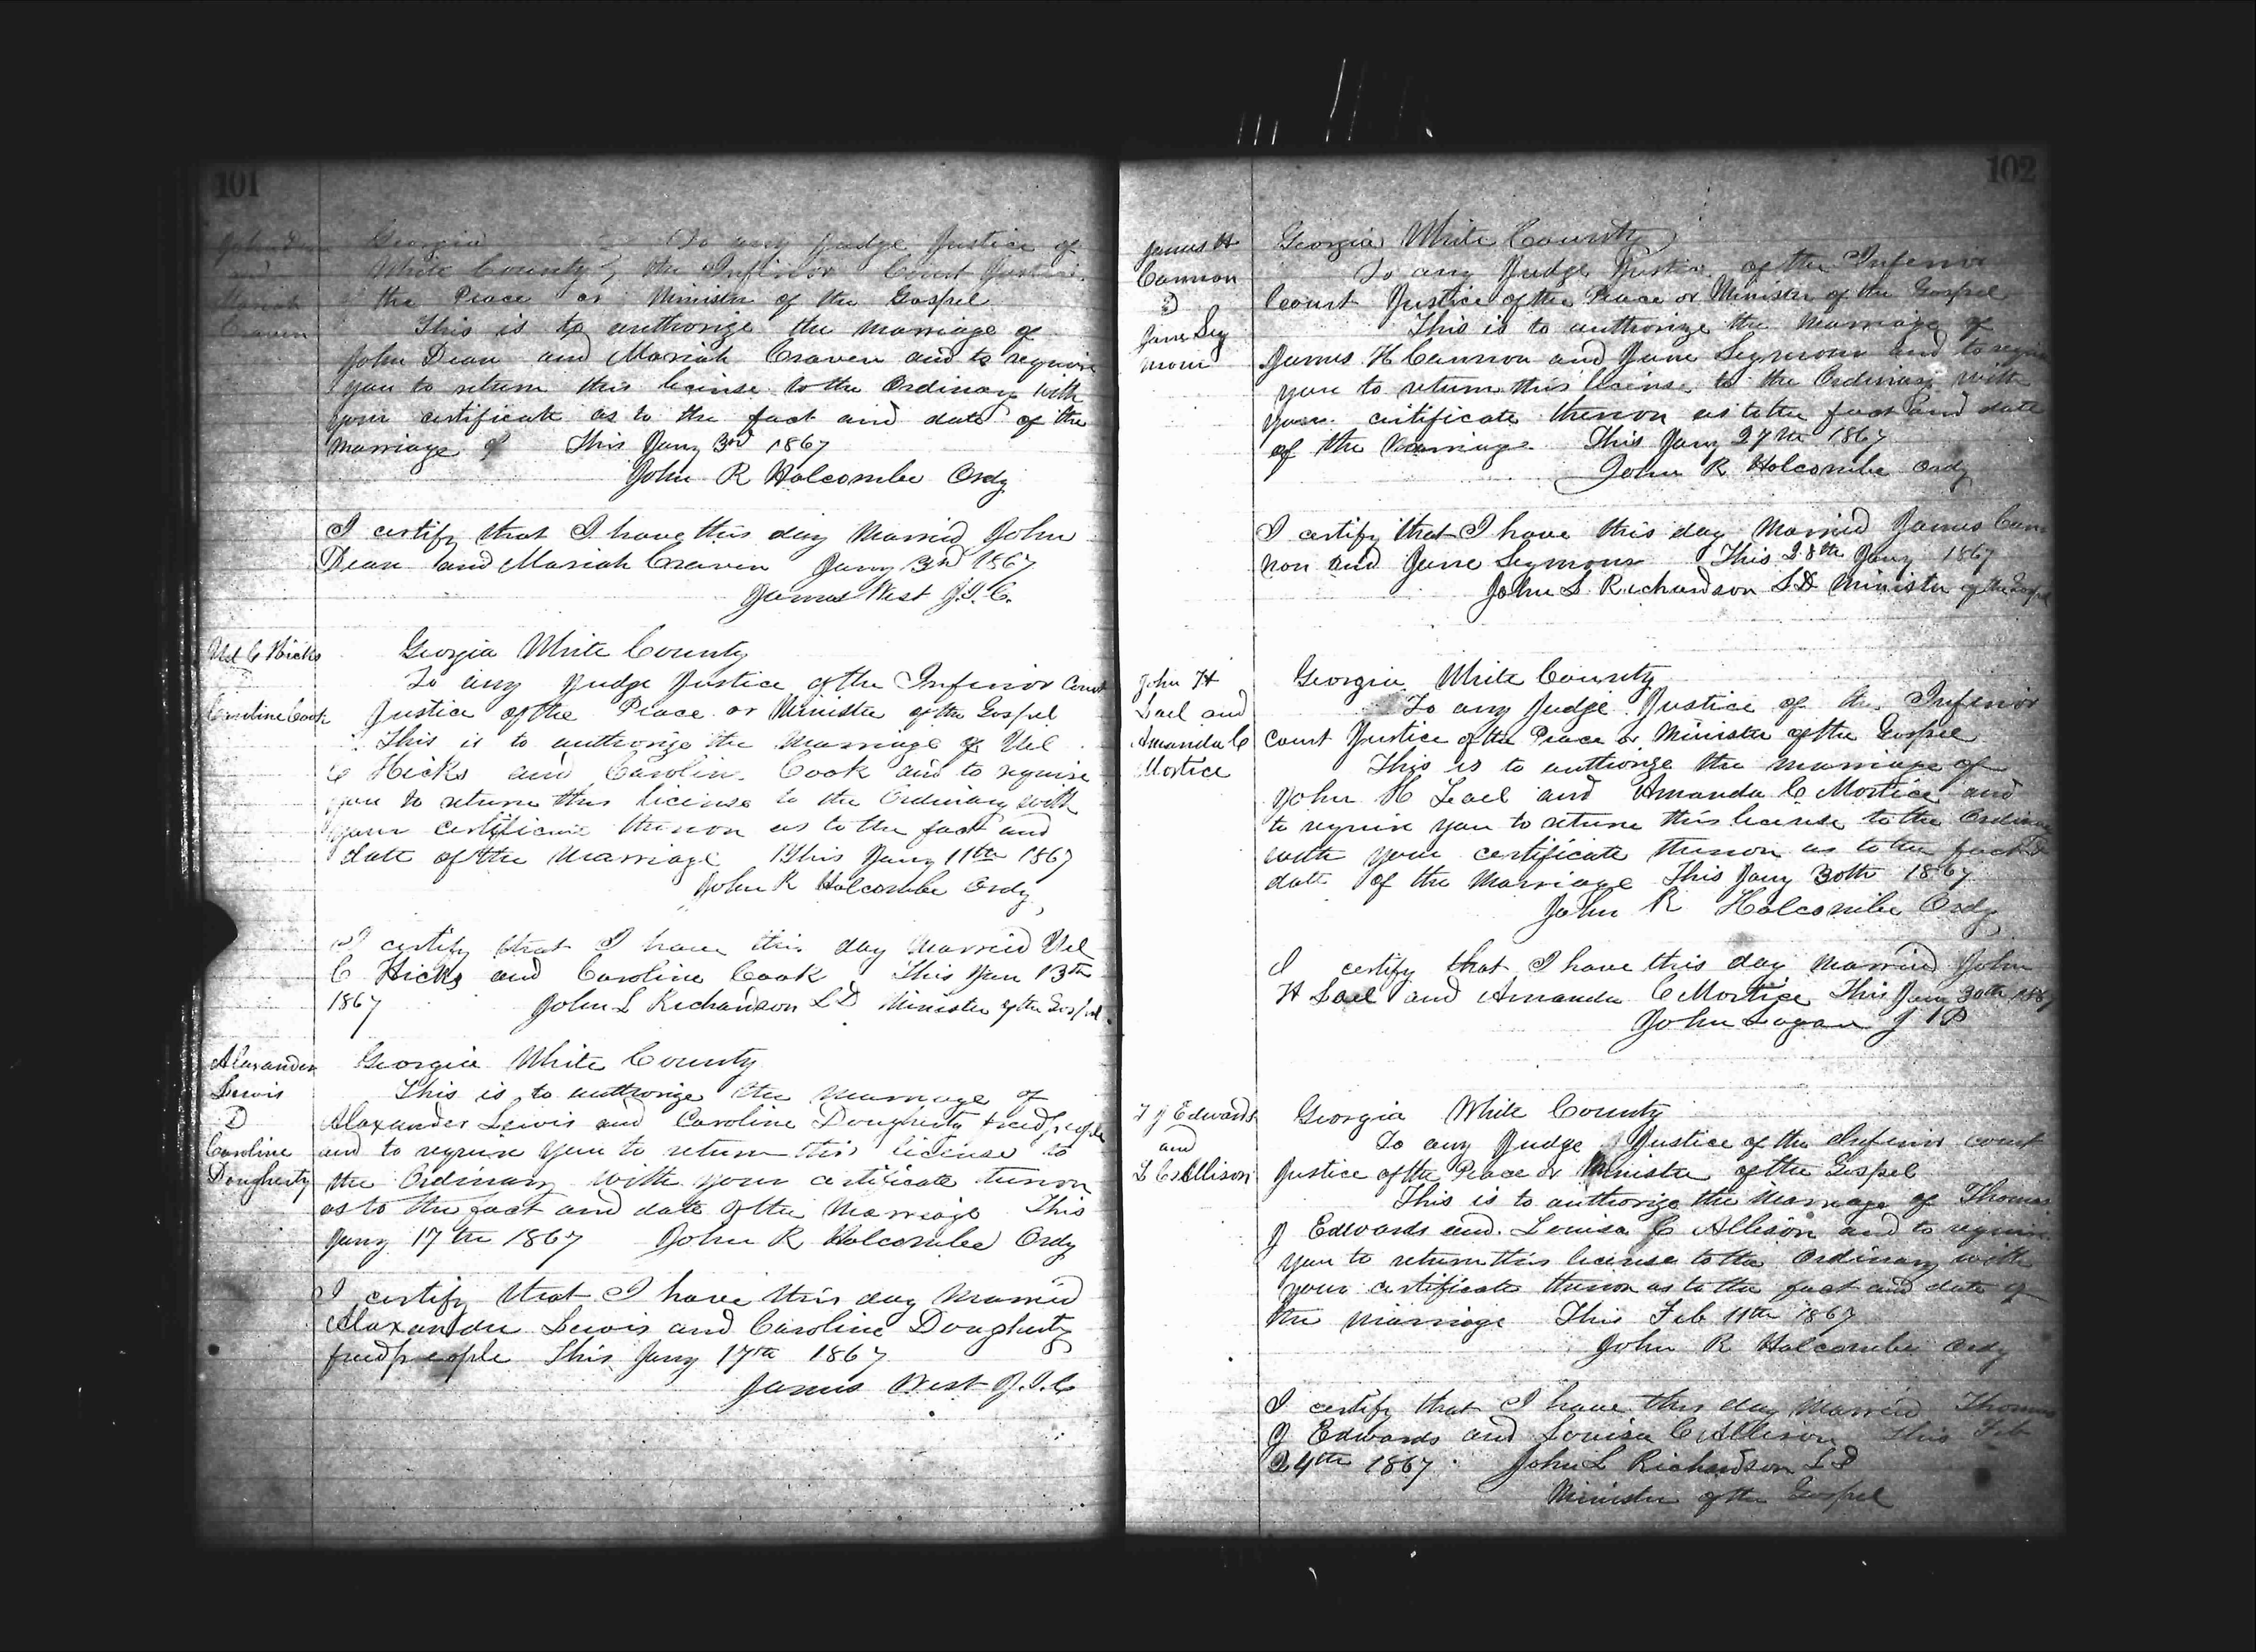 101
John Dean
and
Mariah
Craven
Georgia To any Judge Justice of
White County the Inferior Court Justice
the Peace or Minister of the Gospel
This is to authorize the marriage of
John Dean and Mariah Craven and to require
you to return this license to the Ordinary with
your certificate as to the fact and date of the
marriage This Jany 3rd 1867
John R Holcombe Ordy
I certify that I have this day Married John
Dean and Mariah Craven Jany 3rd 1867
James West J.I.C.
C Hicks
Caroline Cook
Georgia White County
To any Judge Justice of the Inferior Court
Justice of the Peace or Minister of the Gospel
This is to authorize the Marriage of
C Hicks and Caroline Cook and to require
you to return this license to the Ordinary with
your certificate thereon as to the fact and
date of the Marriage This Jany 11th 1867
John R Holcombe Ordy
I certify that I have this day Married
C Hicks and Caroline Cook This Jan 13th
1867 John L Richardson L D Minister of the Gospel
Alexander
Lewis
&
Caroline
Dougherty
Georgia White County
This is to authorize the Marriage of
Alexander Lewis and Caroline Dougherty freedpeople
and to require you to return this license to
the Ordinary with your certificate thereon
as to the fact and date of the Marriage This
Jany 17th 1867 John R Holcombe Ordy
I certify that I have this day Married
Alaxander Lewis and Caroline Dougherty
freedpeople This Jany 17th 1867
James West J.I.C
102
James H
Cannon
&
Jane Sey
mour
Georgia White County
To any Judge Justice of the Inferior
Court Justice of the Peace or Minister of the Gospel
This is to authorize the Marriage of
James H Cannon and Jane Seymour and to require
you to return this license to the Ordinary with
your certificate thereon as to the fact and date
of the Marriage This Jany 27th 1867
John R Holcombe Ordy
I certify that I have this day Married James Can
non and Jane Seymour This 28th Jany 1867
John L Richardson L D Minister of the Gospel
John H
Lael and
Amanda C
Mortice
Georgia White County
To any Judge Justice of the Inferior
Court Justice of the Peace or Minister of the Gospel
This is to authorize the marriage of
John H Lael and Amanda C Mortice and
to require you to return this license to the Ordinary
with your certificate thereon as to the fact &
date of the Marriage This Jany 30th 1867
John R Holcombe Ordy
I certify that I have this day Married John
H Lael and Amanda C Mortice This Jany 30th 1867
John Logan J P
T J Edwards
and
L C Allison
Georgia White County
To any Judge Justice of the Inferior court
Justice of the Peace or Minister of the Gospel
This is to authorize the Marriage of Thomas
J Edwards and Louisa C Allison and to require
you to return this license to the Ordinary with
your certificate thereon as to the fact and date of
the marriage This Feb 11th 1867
John R Holcombe Ordy
I certify that I have this day Married Thomas
J Edwards and Louisa C Allison This Feb
24th 1867 John L Richardson L D
Minister of the Gospel